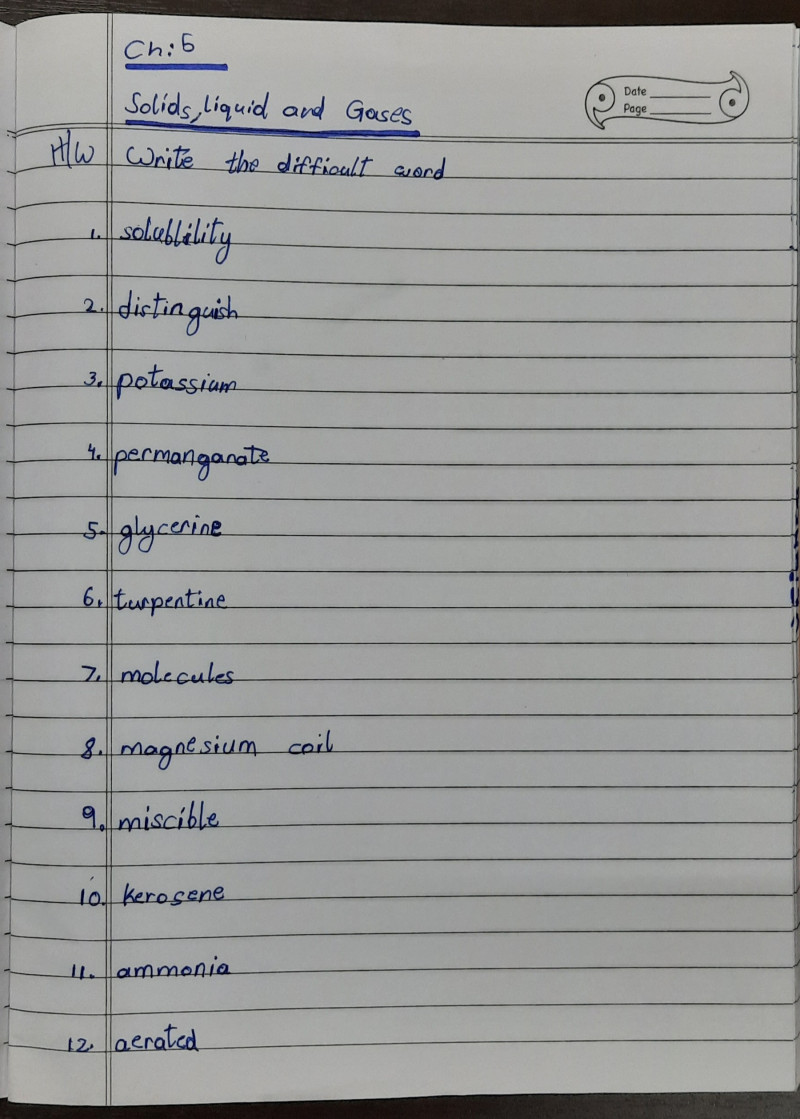 Ch: 5
Solids, liquid and Gases
Date
Page
H/W Write the difficult word
1. solubility
2. distinguish
3. potassium
4. permanganate
5. glycerine
6. turpentine
7. molecules
8. magnesium coil
9. miscible
10. kerosene
11. ammonia
12. aerated